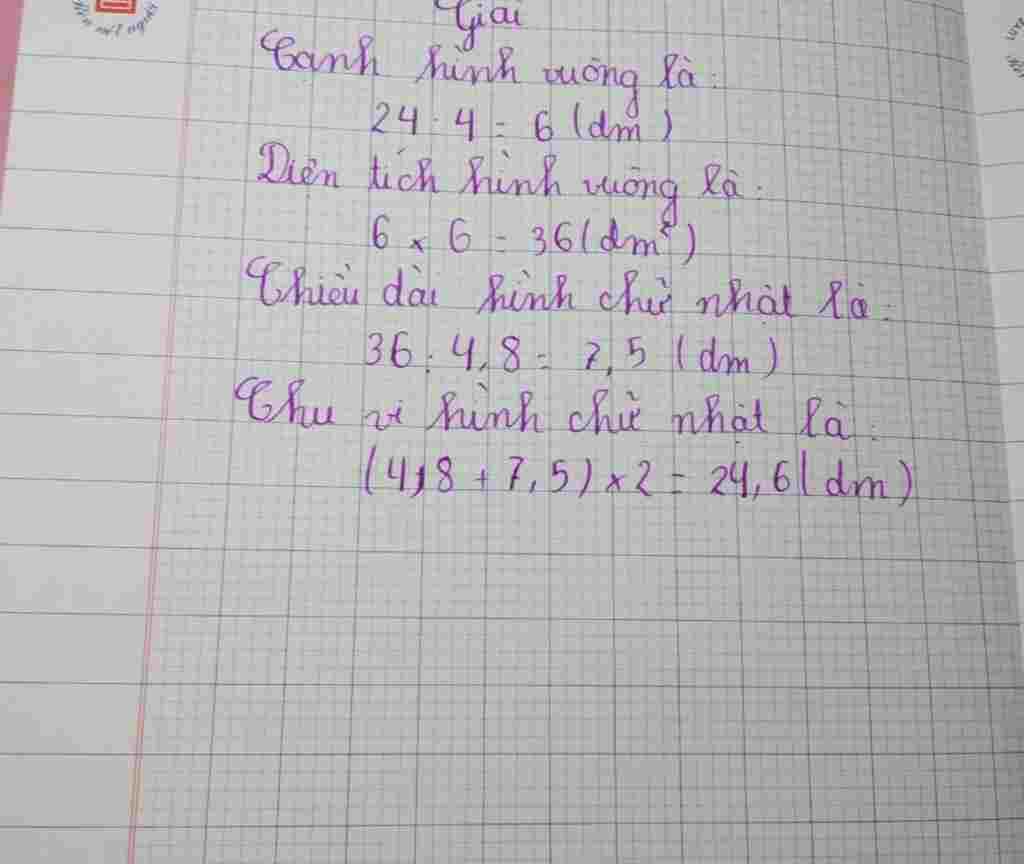 Giải
Cạnh hình vuông là:
24 : 4 = 6 (dm)
Diện tích hình vuông là:
6 x 6 = 36 (dm²)
Chiều dài hình chữ nhật là:
36 : 4,8 = 7,5 (dm)
Chu vi hình chữ nhật là:
(4,8 + 7,5) x 2 = 24,6 (dm)